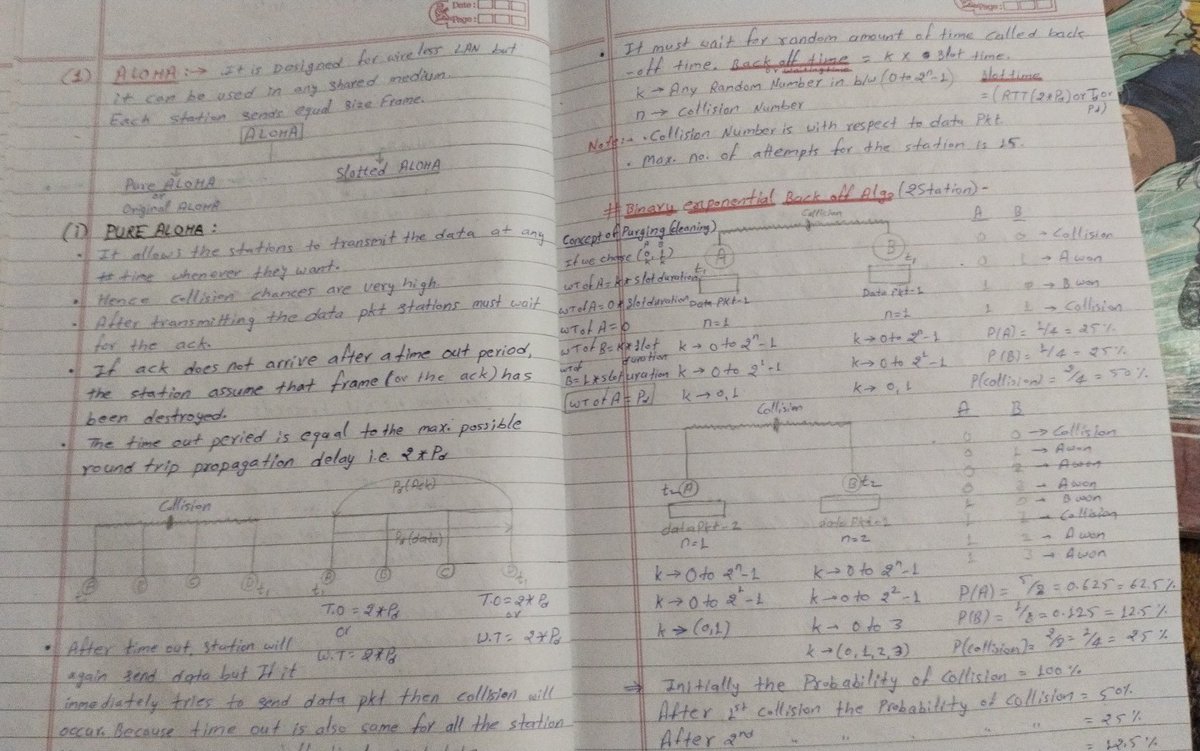 Date :
Page :
(1) ALOHA :→ It is Designed for wire less LAN but
it can be used in any shared medium.
Each station sends equal size Frame.
ALOHA
Pure ALOHA
or
Original ALOHA
Slotted ALOHA
(1) PURE ALOHA :
• It allows the stations to transmit the data at any
time whenever they want.
• Hence collision chances are very high
• After transmitting the data pkt stations must wait
for the ack.
• If ack does not arrive after a time out period,
the station assume that frame (or the ack) has
been destroyed.
• The time out period is equal to the max. possible
round trip propagation delay i.e. 2*Pd
Collision
Pd(Ack)
Pd(data)
t1
t1
T.O = 2*Pd
or
W.T = 2*Pd
T.O = 2*Pd
or
W.T = 2*Pd
• After time out, station will
again send data but If it
immediately tries to send data pkt then collision will
occur. Because time out is also same for all the station
Page :
• It must wait for random amount of time called back
-off time. Back off time = k x slot time.
or waiting time
k → Any Random Number in b/w (0 to 2ⁿ-1)
n → collision Number
slot time
= (RTT(2*Pd) or
Note :- • Collision Number is with respect to data Pkt
• Max. no. of attempts for the station is 15.
# Binary exponential Back off Algo (2Station) -
Concept of Purging (cleaning)
If we chose
WT of A = k * slot duration
WT of A = 0 * slot duration
WT of A = 0
WT of B = k * slot
duration
WT of
B = 1 * slot duration
WT of A = Pd
Collision
A
B
t1
t1
Data Pkt-1
Data Pkt-1
n=1
n=1
k → 0 to 2ⁿ-1
k → 0 to 2ⁿ-1
k → 0 to 2¹-1
k → 0 to 2¹-1
k → 0, 1
k → 0, 1
A B
0 0 → Collision
0 1 → A won
1 0 → B won
1 1 → Collision
P(A) = 1/4 = 25%
P(B) = 1/4 = 25%
P(collision) = 2/4 = 50%
Collision
t2 A
B t2
data Pkt-2
data Pkt-1
n=1
n=2
k → 0 to 2ⁿ-1
k → 0 to 2ⁿ-1
k → 0 to 2¹-1
k → 0 to 2²-1
k → (0,1)
k → 0 to 3
k → (0, 1, 2, 3)
A B
0 0 → Collision
0 1 → A won
0 2 → A won
0 3 → A won
1 0 → B won
1 1 → Collision
1 2 → A won
1 3 → A won
P(A) = 5/8 = 0.625 = 62.5%
P(B) = 1/8 = 0.125 = 12.5%
P(collision) = 2/8 = 1/4 = 25%
⇒ Initially the Probability of Collision = 100%
After 1st collision the Probability of Collision = 50%
After 2nd " " " = 25%
= 12.5%